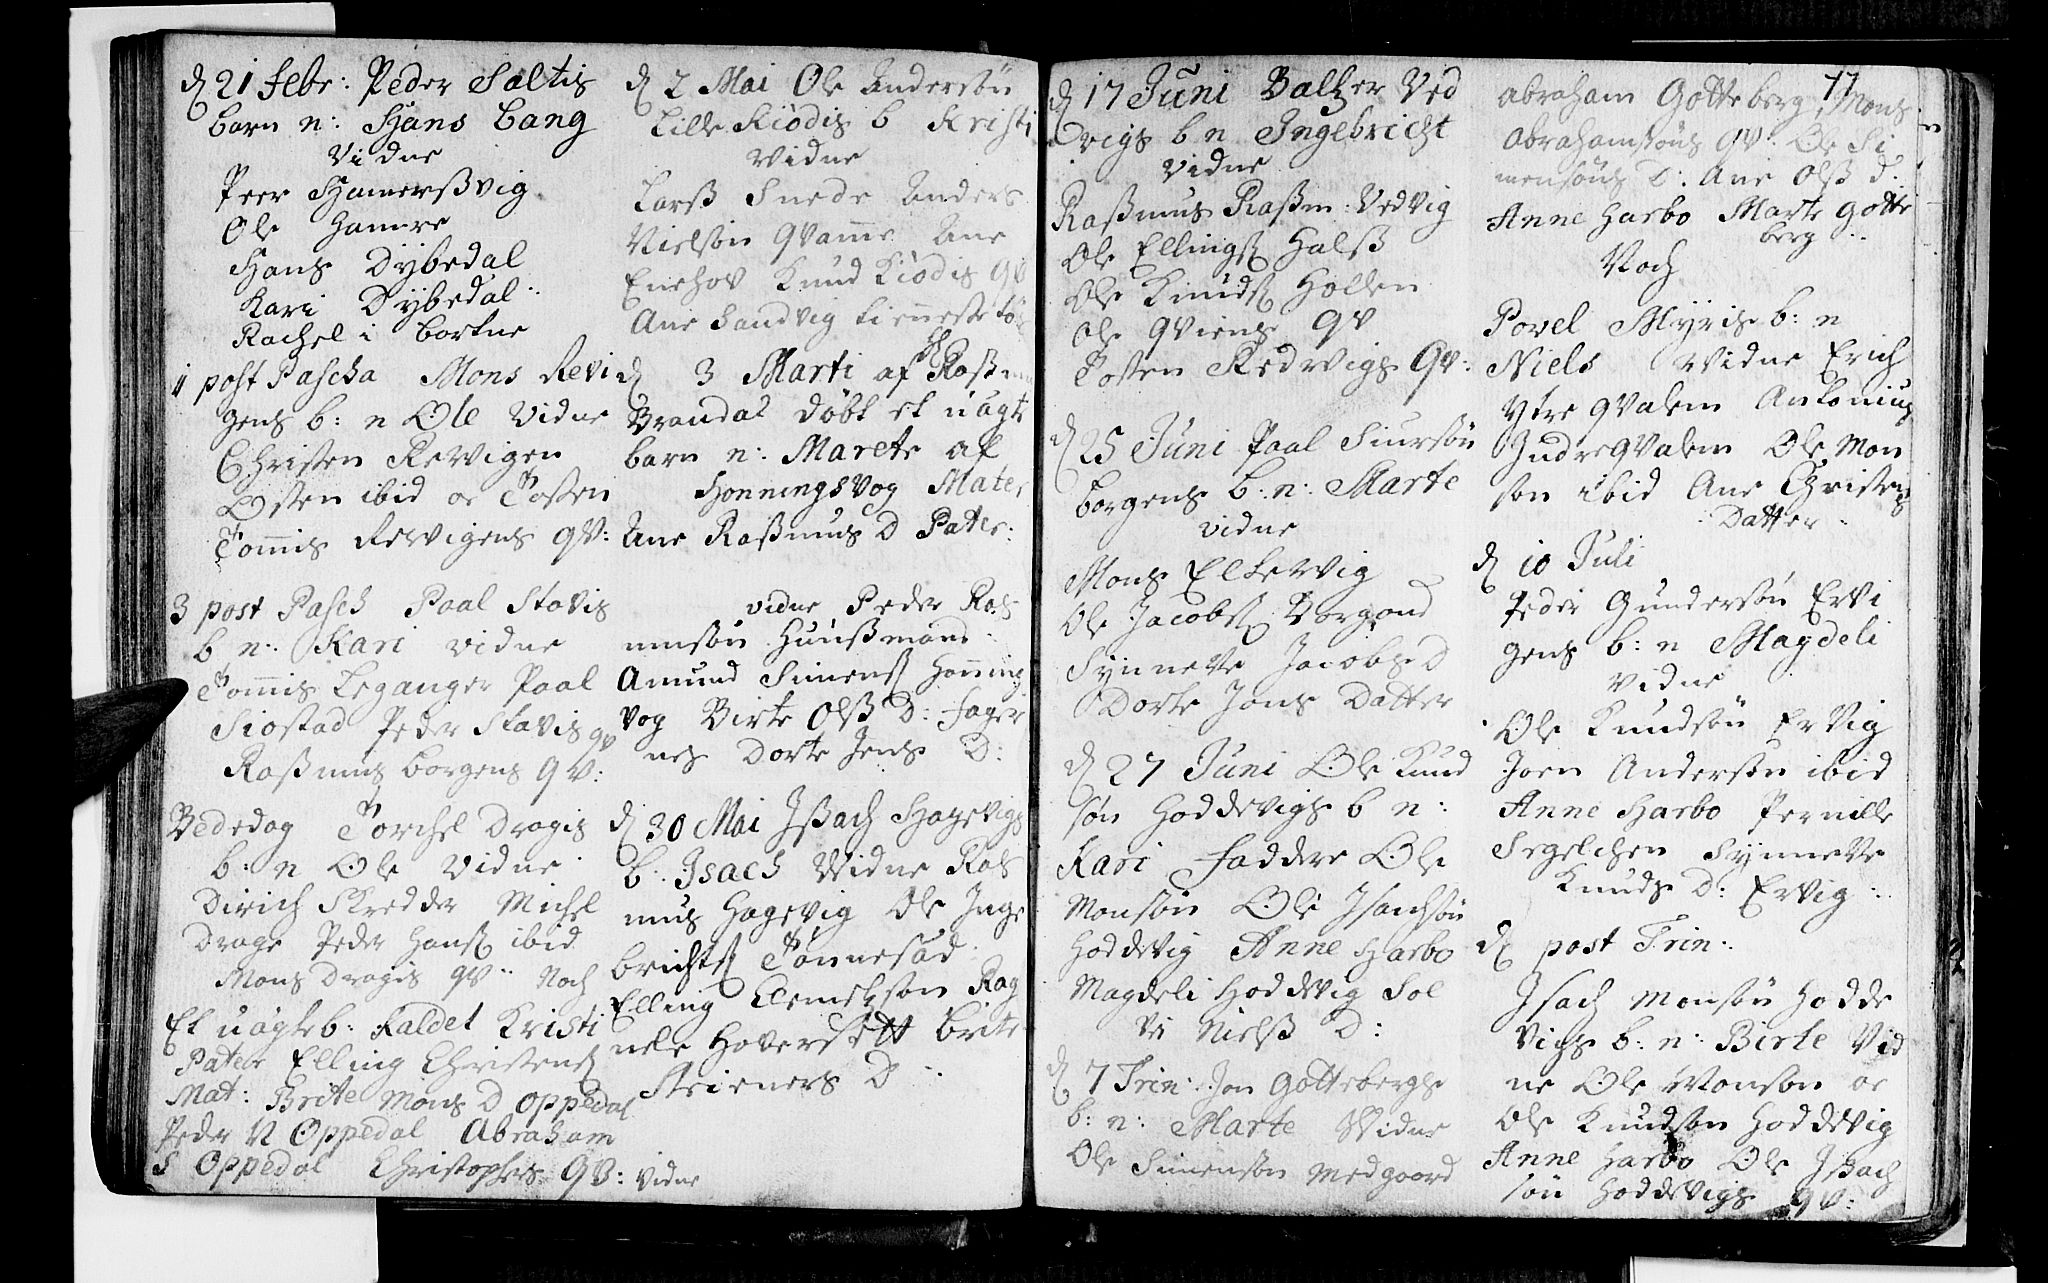 d 21 Febr: Peder Saltis
barn n: Hans bang
Vidne
Peer Hamersßvig
Ole Hamre
Hans Dybedal
Kari Dybedal
Rachel i bortne
1 post Pascha Mons Revi
gens b: n Ole Vidne
Christen Rervigen
Osten ibid oc Tosten
Tom̄is Rervigens qv:
3 post Pasch Paal Stavis
b n: Kari vidne
Tom̄is Leganger Paal
Siostad Peder Stavis qv
Raßmus borgens qv:
Bededag Torchel Dragis
b: n Ole Vidne
Dirich Skredder Michel
Drage Peder Hans ibid
Mons Dragis qv: Noch
Et uägte b: kaldet Kristi
Pater Elling Christens
Mat: Brite Mons D Oppedal
Peder N Oppedal Abraham
S Oppedal Christophers qv: vidne
d 2 Mai Ole Andersön
Lille Kiödis b Kristi
Vidne
Larß Snede Anders
Nielsön Qvam̄e Ane
Enehov Knud Kiödis qv
Ane Sandvig tien̄este tö
d 3 Marti af H Raßm
Brandal döbt et uägte
barn n: Marete af
Honningsvog Mater
Ane Raßmus D Pater:
vidne Peder Ras
musön Huußmand
Amund Simens Hon̄ing
vog Birte Olß D: Fager
nes Dorte Jens D:
d 30 Mai Jßach Hagevigs
b: Jsach Vidne Ras
mus Hagevig Ole Inge
brichts Tönnesad
Elling Clemetsön Rag
nele Hoversett Brite
Steiners D
d 17 Juni Baltzer Ved
vigs b n Ingebricht
Vidne
Raßmus Raßm: Vedvig
Ole Ellings Halß
Ole Knuds Hollen
Ole Qviens qv
Tosten Redvigs qv:
d 25 Juni Paal Siursön
borgens b: n: Marte
vidne
Mons Elkevig
Ole Jacobs Borgond
Synneve Jacobs D
Dorte Jons Datter
d 27 Juni Ole Knud
sön Hoddevigs b n:
Kari Faddre Ole
Monsön Ole Jsachsön
Hoddevig Anne Harbo
Magdeli Hoddevig Sol
vi Nielß D:
d 7 Trin: Jon Gottebergs
b: n: Marte Vidne
Ole Simensön Medgoard
77
Abraham Gotteberg, Mons
Abrahamsöns qv: Ole Si
mensöns D: Ane Olß d:
Anne Harbo Marte Gotte
berg
Noch
Povel Myris b: n
Niels Vidne Erich
Ytre qvalem Antonius
Indre qvalem Ole Mon
son ibid Ane Christens
Datter
d 10 Juli
Peder Gundersön Ervi
gens b: n Magdeli
Vidne
Ole Knudsön Ervig
Joen Andersen ibid
Anne Harbo Pernille
Segelchen Synneve
Knuds D: Ervig
d post Trin:
Jsach Monsön Hodde
vigs b: n: Birte Vid
ne Ole Monson oc
Ole Knudsön Hoddevig
Anne Harbo Ole Jßach
sön Hoddevigs qv: